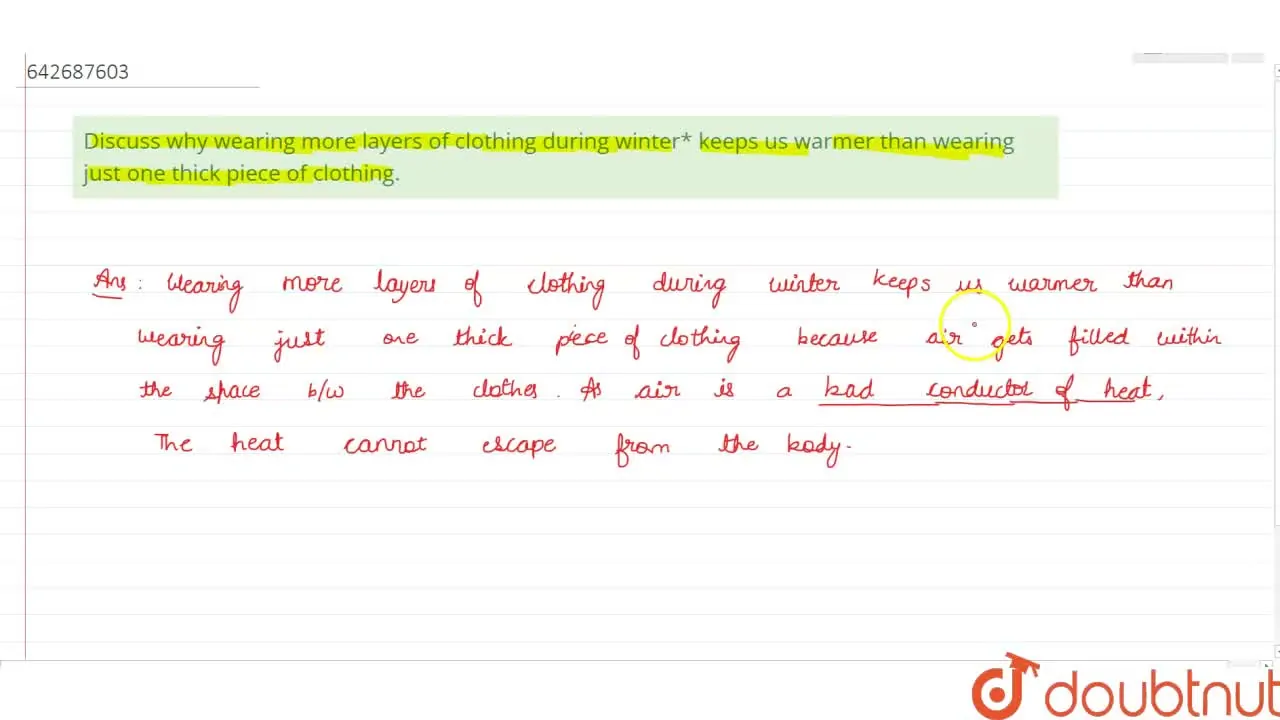 642687603
Discuss why wearing more layers of clothing during winter* keeps us warmer than wearing
just one thick piece of clothing.
Ans : Wearing more layers of clothing during winter keeps us warmer than
wearing just one thick piece of clothing because air gets filled within
the space b/w the clothes. As air is a bad conductor of heat,
The heat cannot escape from the body.
doubtnut